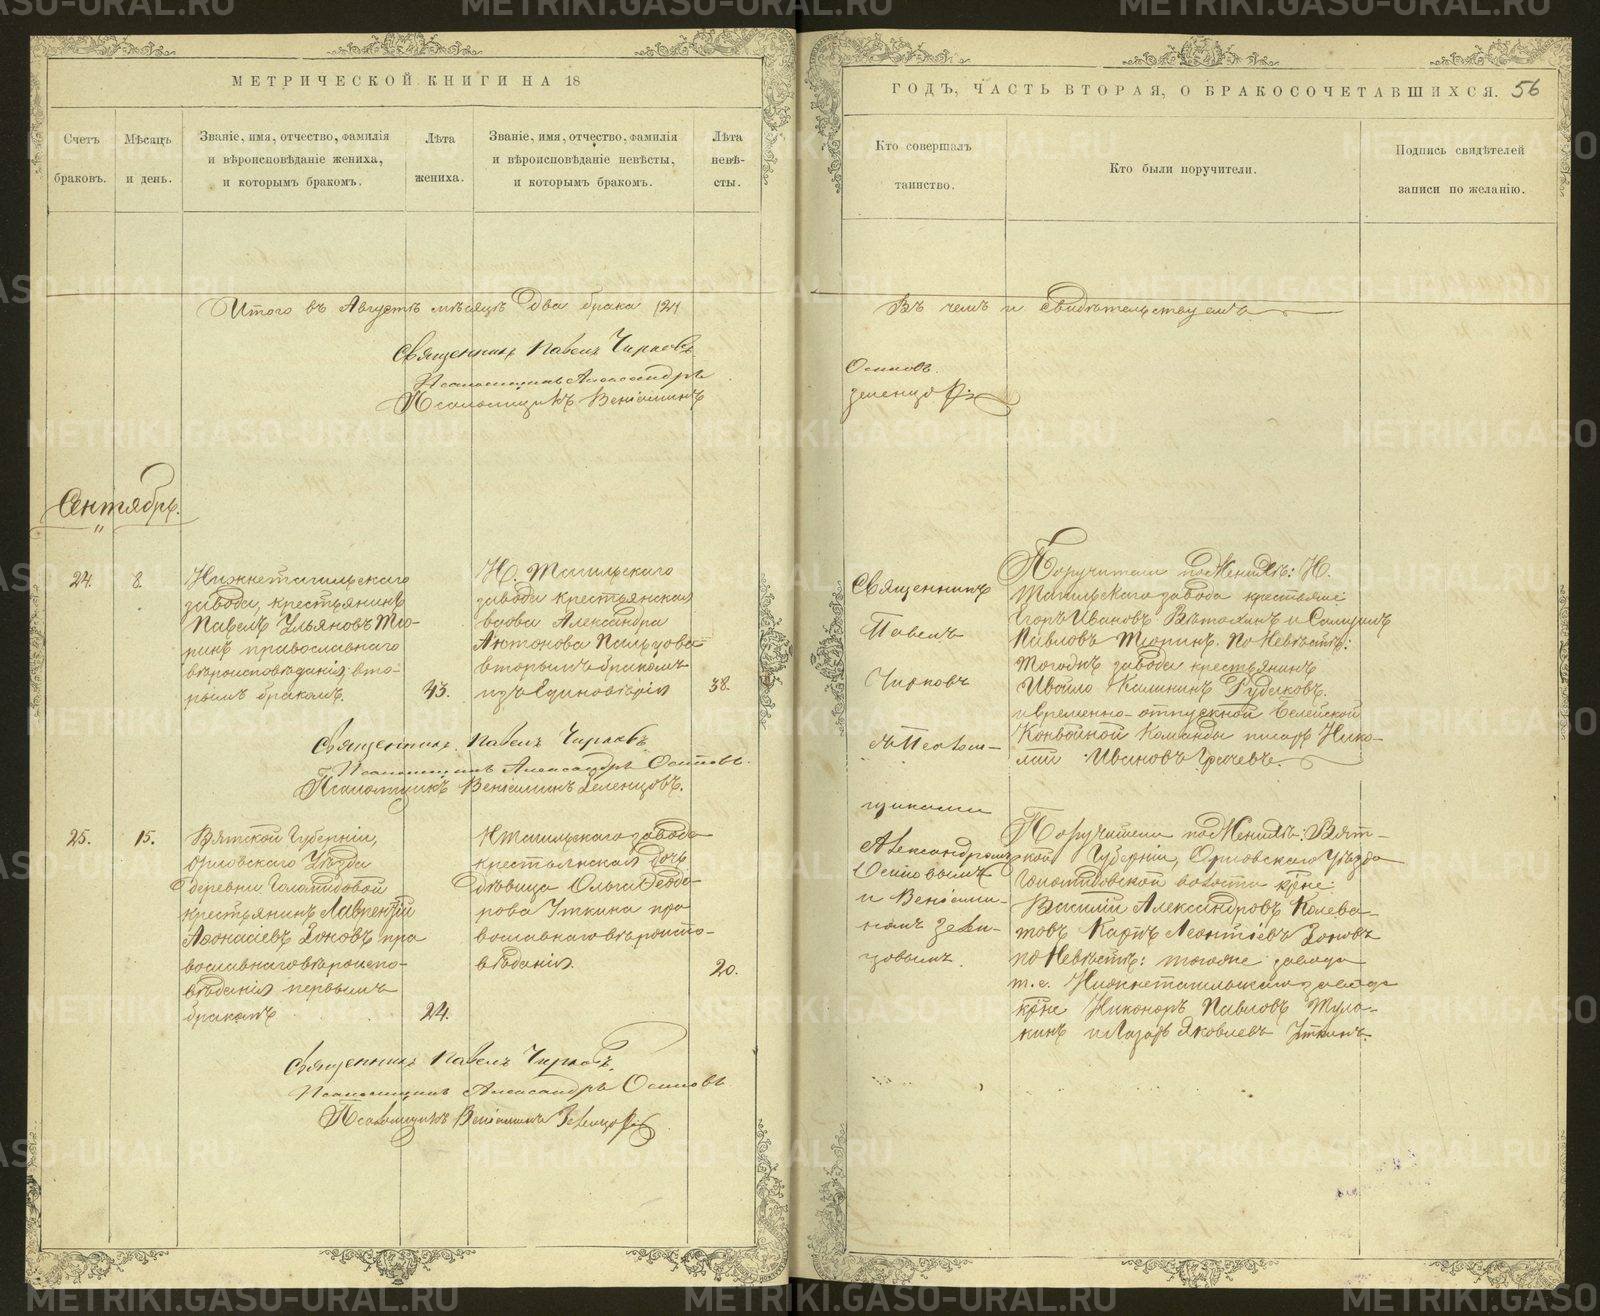 МЕТРИЧЕСКОЙ КНИГИ НА 18
Счетъ
браковъ.
Мѣсяцъ
и день.
Званіе, имя, отчество, фамилія
и вѣроисповѣданіе жениха,
и которымъ бракомъ.
Лѣта
жениха.
Званіе, имя, отчество, фамилія
и вѣроисповѣданіе невѣсты,
и которымъ бракомъ.
Лѣта
невѣ-
сты.
Итого въ Августѣ мѣсяцѣ два брака (2)
Священникъ Павелъ Чирковъ
Псаломщикъ Александръ
Псаломщикъ Веніаминъ
Сентябрь.
24.
8.
Нижнетагильскаго
завода, крестьянинъ
Павелъ Ульяновъ Тю-
ринъ православнаго
вѣроисповѣданія, вто-
рымъ бракомъ.
43.
Н. Тагильскаго
завода крестьянская
вдова Александра
Антонова
вторымъ бракомъ
изъ Единовѣрія
38.
Священникъ Павелъ Чирковъ
Псаломщикъ Александръ Осиповъ.
Псаломщикъ Веніаминъ Зеленцовъ.
25.
15.
Вятской Губерніи,
Орловскаго Уѣзда
деревни
крестьянинъ Лаврентій
Аѳонасіевъ Зоновъ пра
вославнаго вѣроиспо-
вѣданія первымъ
бракомъ
24.
Н Тагильскаго завода
крестьянская дочь
дѣвица Ольга Ѳедо-
рова Уткина пра
вославнаго вѣроиспо-
вѣданія.
20.
Священникъ Павелъ Чирковъ.
Псаломщикъ Александръ Осиповъ
Псаломщикъ Веніаминъ Зеленцовъ
ГОДЪ, ЧАСТЬ ВТОРАЯ, О БРАКОСОЧЕТАВШИХСЯ. 56
Кто совершалъ
таинство.
Кто были поручители.
Подпись свидѣтелей
записи по желанію.
Въ чемъ и свидѣтельствуемъ
Осиповъ.
Зеленцовъ
Священникъ
Павелъ
Чирковъ
съ Псалом-
щиками
Александромъ
Осиповымъ
и Веніами-
номъ Зелен-
цовымъ.
Поручители по Женихѣ: Н.
Тагильскаго завода крестьяне
Егоръ Ивановъ и Самуилъ
Павловъ Тюринъ. По Невѣстѣ:
тогоже завода крестьянинъ
Калининъ Рудаковъ.
и временно-отпускной
Конвойной Команды писарь Нико-
лай Ивановъ Грачевъ.
Поручители по Женихѣ: Вят-
ской Губерніи, Орловскаго Уѣзда
волости кр̃не
Василій Александровъ Колева-
товъ Карпъ Леонтіевъ Зоновъ
по Невѣстѣ: тогоже завода
т.е. Нижнетагильскаго завода
кр̃не Никоноръ Павловъ
и Лазарь Яковлевъ Уткинъ.
METRIKI.GASO-URAL.RU